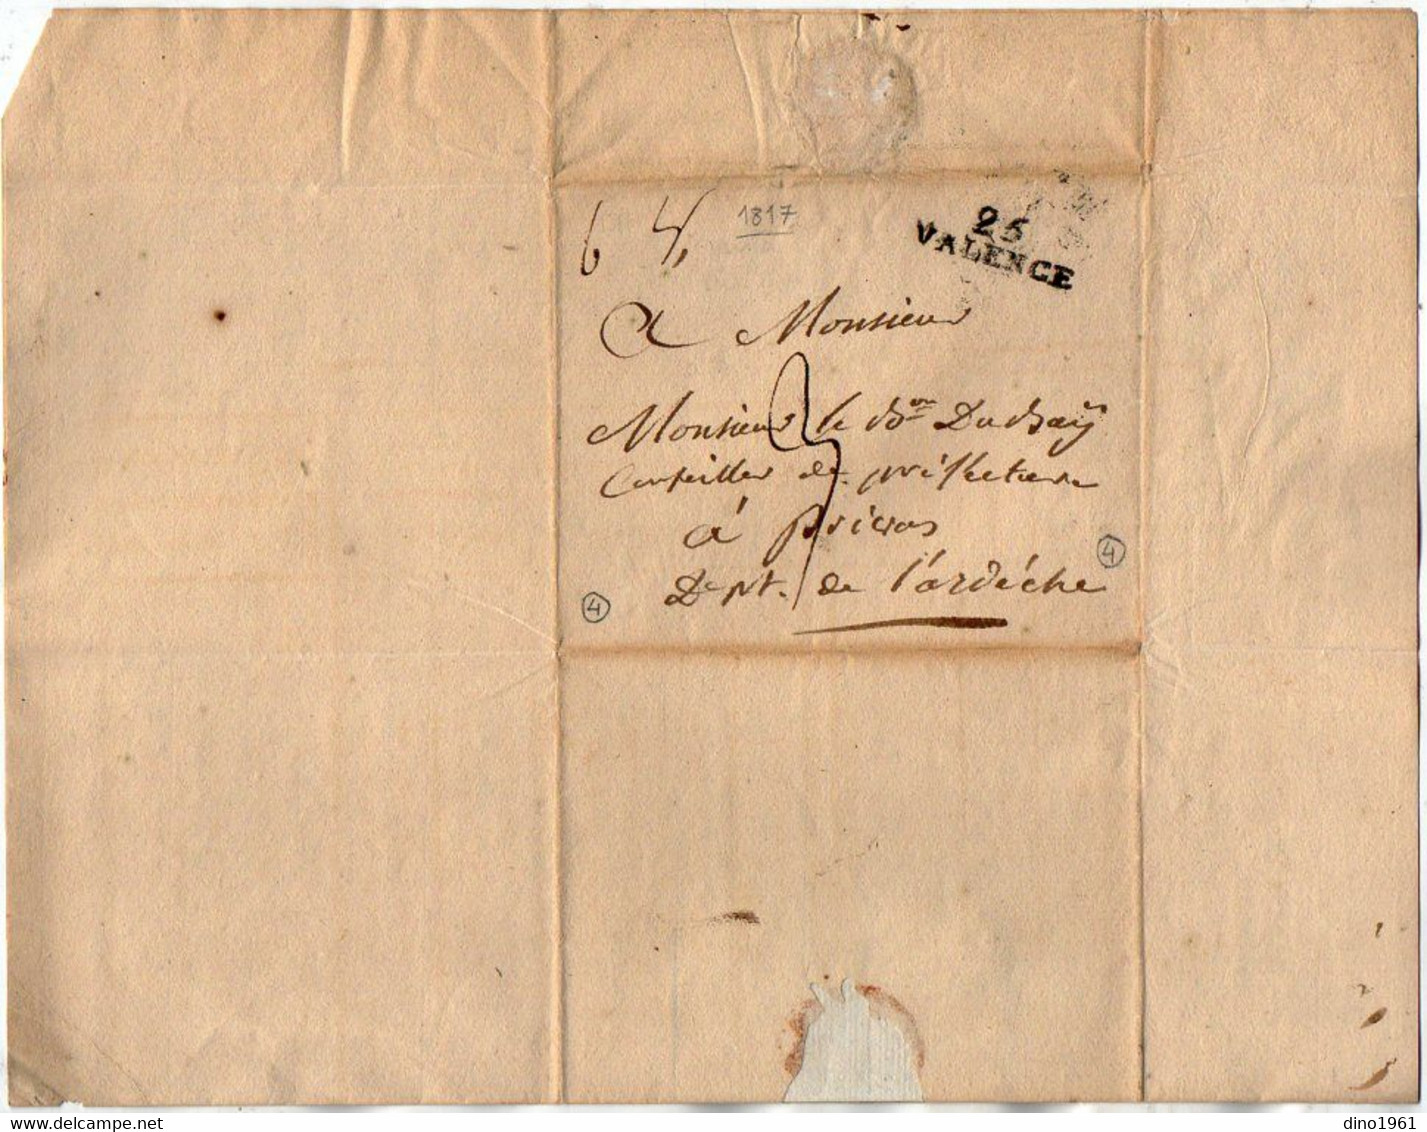 6 4
1817
25
VALENCE
A Monsieur
3
Monsieur le Bon Dubay
Conseiller de préfecture
à privas
Dept. de l'ardèche
4
4
delcampe.net
dino1961